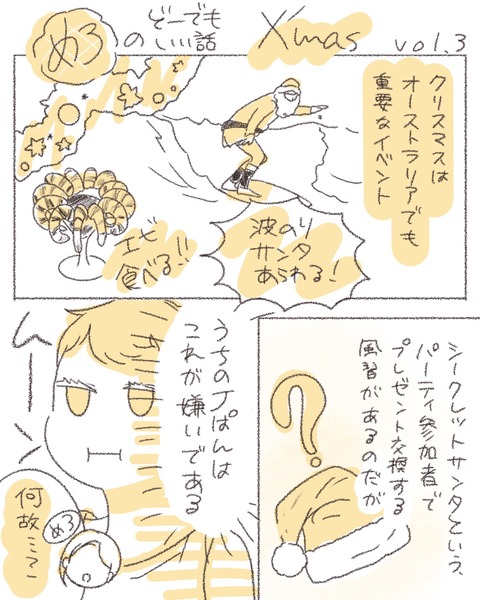 めろ
の
どーでも
いい話
Xmas
vol.3
クリスマスは
オーストラリアでも
重要なイベント
エビ
食べる!!
波のり
サンタ
あらわる!
シークレットサンタという、
パーティ参加者で
プレゼント交換する
風習があるのだが
うちのJぱんは
これが嫌いである
ムーッ
めろ
何故ここで